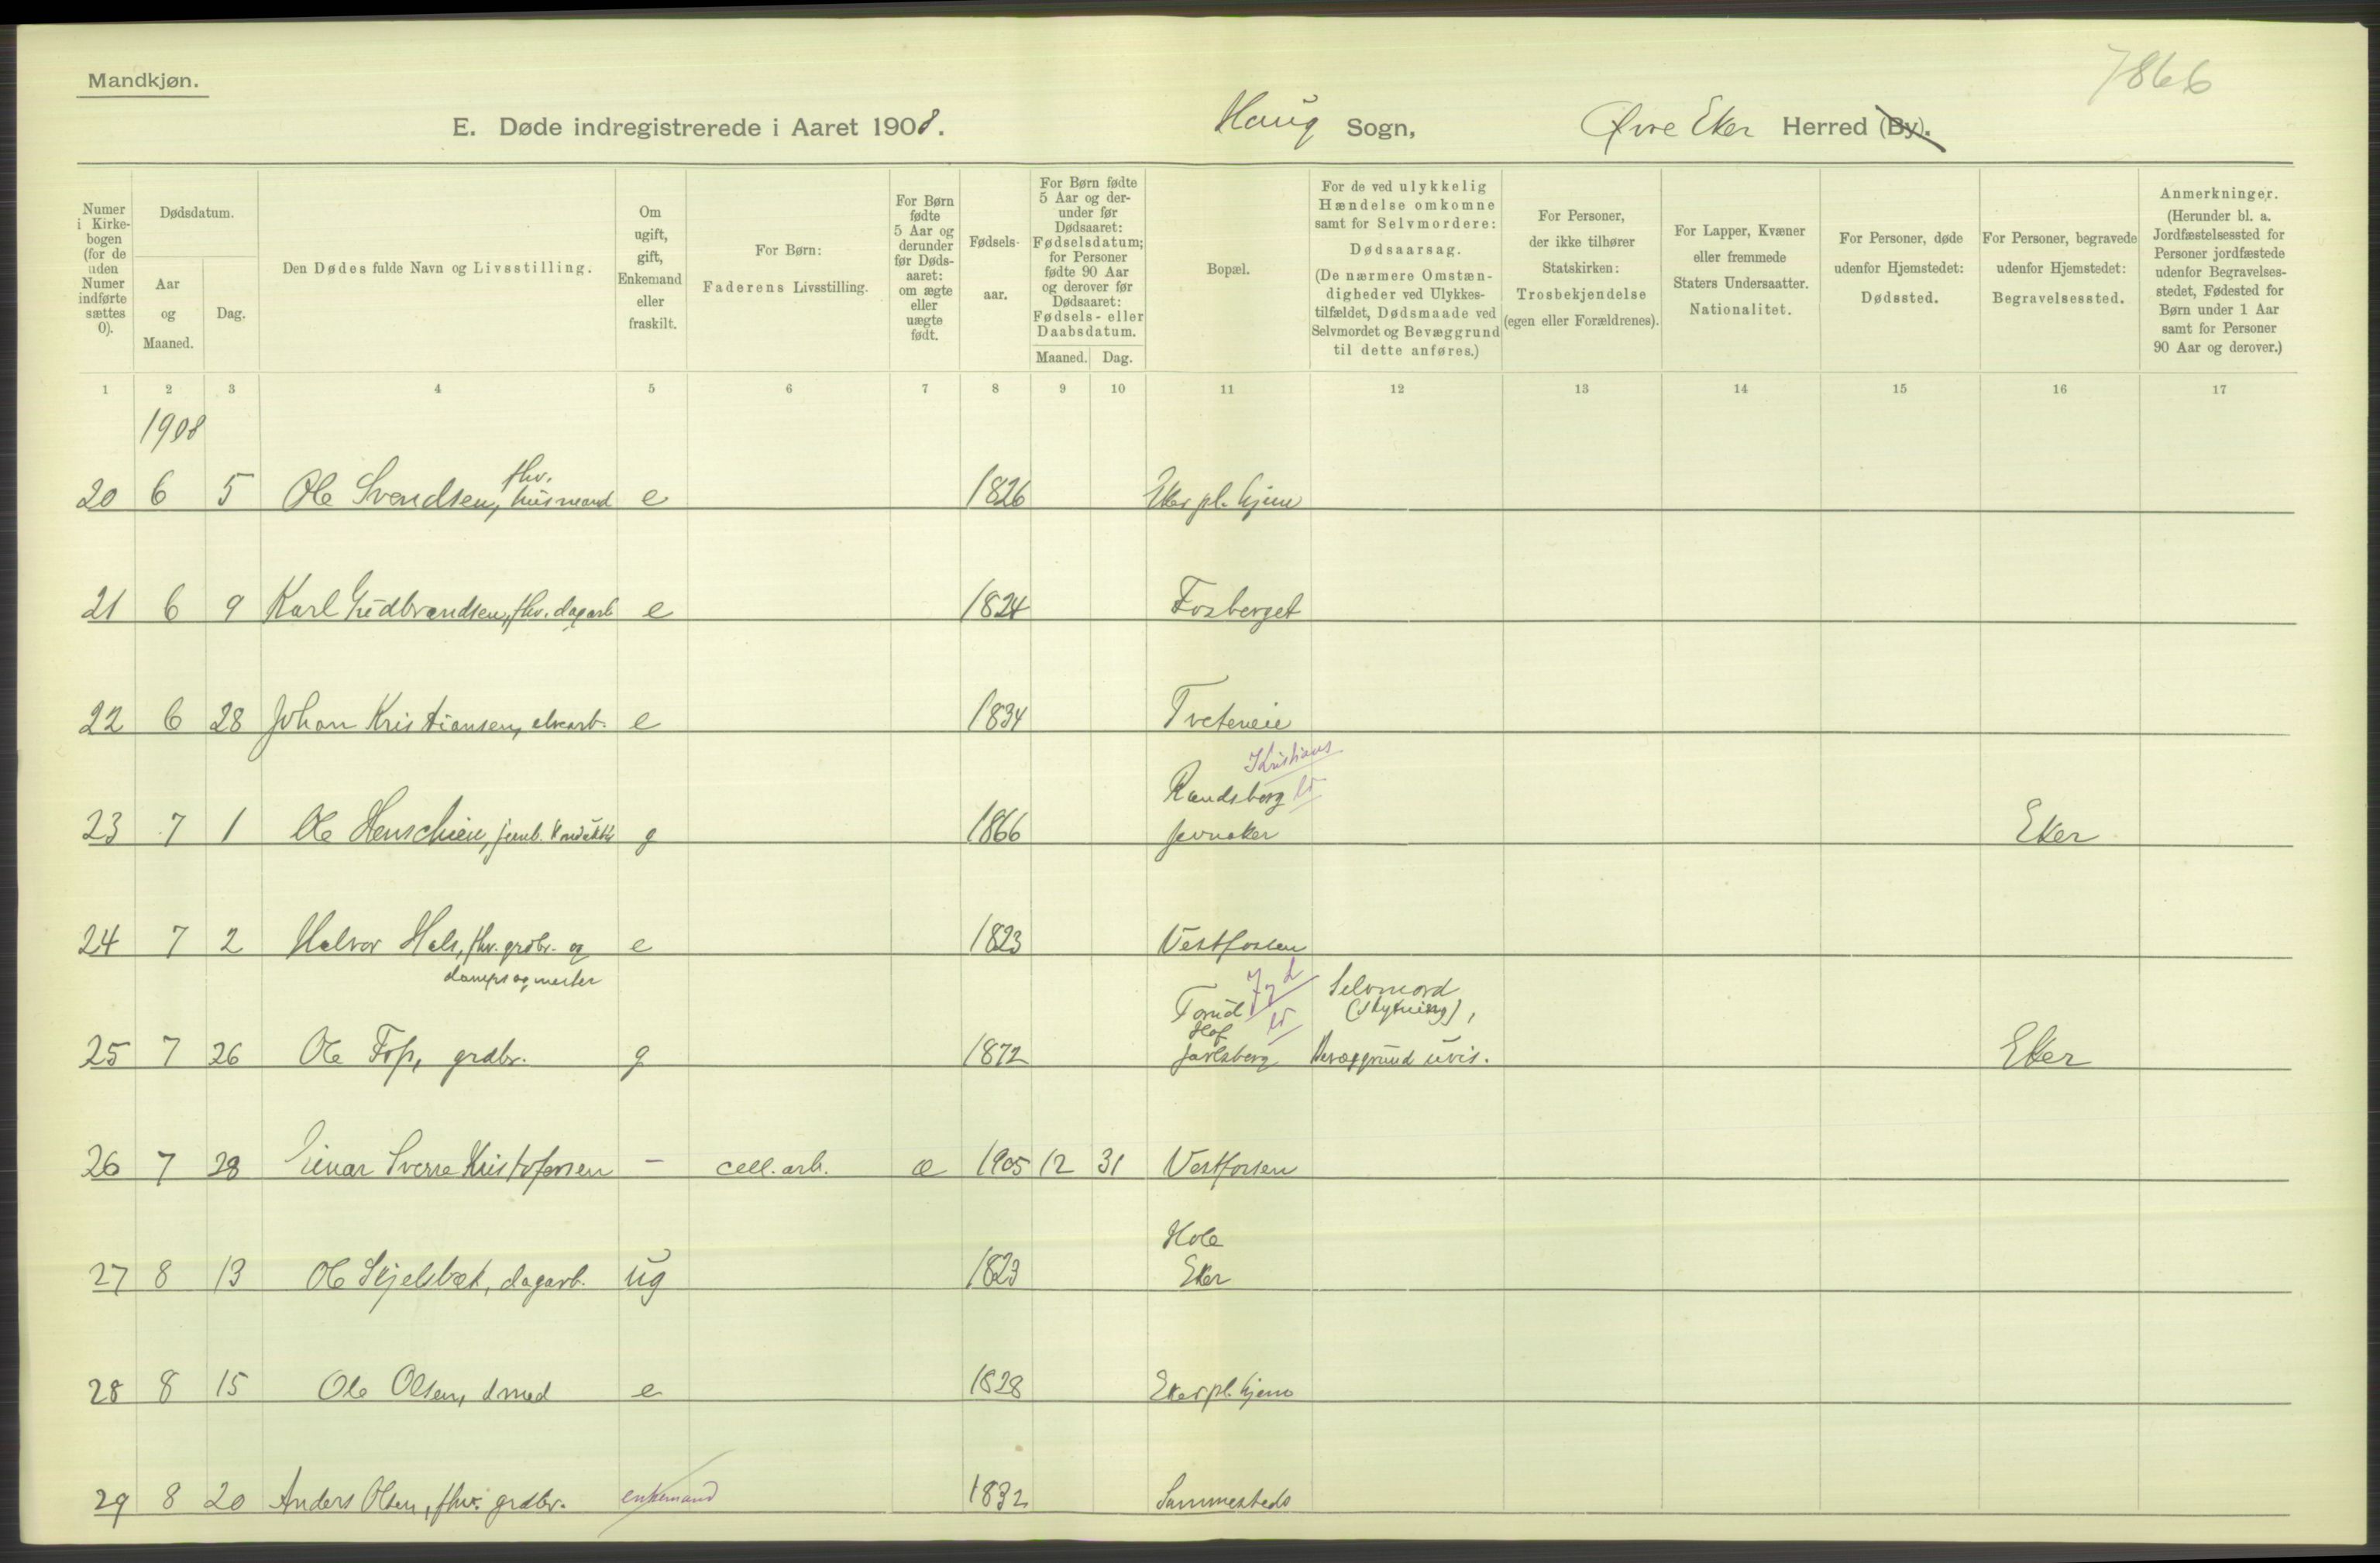 7866
Mandkjøn.
E. Døde indregistrerede i Aaret 1908. Haug Sogn, Øvre Eker Herred (By).
Numer i Kirkebogen (for de uden Numer indførte sættes 0).
Dødsdatum.
Aar og Maaned.
Dag.
Den Dødes fulde Navn og Livsstilling.
Om ugift, gift, Enkemand eller fraskilt.
For Børn: Faderens Livsstilling.
For Børn fødte 5 Aar og derunder før Dødsaaret: om ægte eller uægte født.
Fødselsaar.
For Børn fødte 5 Aar og derunder før Dødsaaret: Fødselsdatum; for Personer fødte 90 Aar og derover før Dødsaaret: Fødsels- eller Daabsdatum.
Maaned. Dag.
Bopæl.
For de ved ulykkelig Hændelse omkomne samt for Selvmordere: Dødsaarsag. (De nærmere Omstændigheder ved Ulykkestilfældet, Dødsmaade ved Selvmordet og Bevæggrund til dette anføres.)
For Personer, der ikke tilhører Statskirken: Trosbekjendelse (egen eller Forældrenes).
For Lapper, Kvæner eller fremmede Staters Undersaatter. Nationalitet.
For Personer, døde udenfor Hjemstedet: Dødssted.
For Personer, begravede udenfor Hjemstedet: Begravelsessted.
Anmerkninger. (Herunder bl. a. Jordfæstelsessted for Personer jordfæstede udenfor Begravelsesstedet, Fødested for Børn under 1 Aar samt for Personer 90 Aar og derover.)
1 2 3 4 5 6 7 8 9 10 11 12 13 14 15 16 17
1908
20 6 5 Ole Svendsen, fhv. husmand e 1826 Eker pl. hjem
21 6 9 Karl Gudbrandsen, fhv. dagarb e 1824 Fosberget
22 6 28 Johan Kristiansen, elvearb. e 1834 Tveteneie
Kristians
Randsberg
23 7 1 Ole Henschien, jernb. konduktør g 1866 Jevnaker Eker
24 7 2 Halvor Hals, fhv. grdbr. og e 1823 Vestfossen
dampsagmester
Selvmord
Torud (skytning),
Hof
25 7 26 Ole Foss, grdbr. g 1872 Jarlsberg Bevæggrund uvis. Eker
26 7 28 Einar Sverre Kristofersen - cell. arb. æ 1905 12 31 Vestfossen
Hole
27 8 13 Ole Skjelbæk, dagarb. ug 1823 Eker
28 8 15 Ole Olsen, smed e 1828 Eker pl. hjem
29 8 20 Anders Olsen, fhv. grdbr. enkemand 1832 Sammesteds